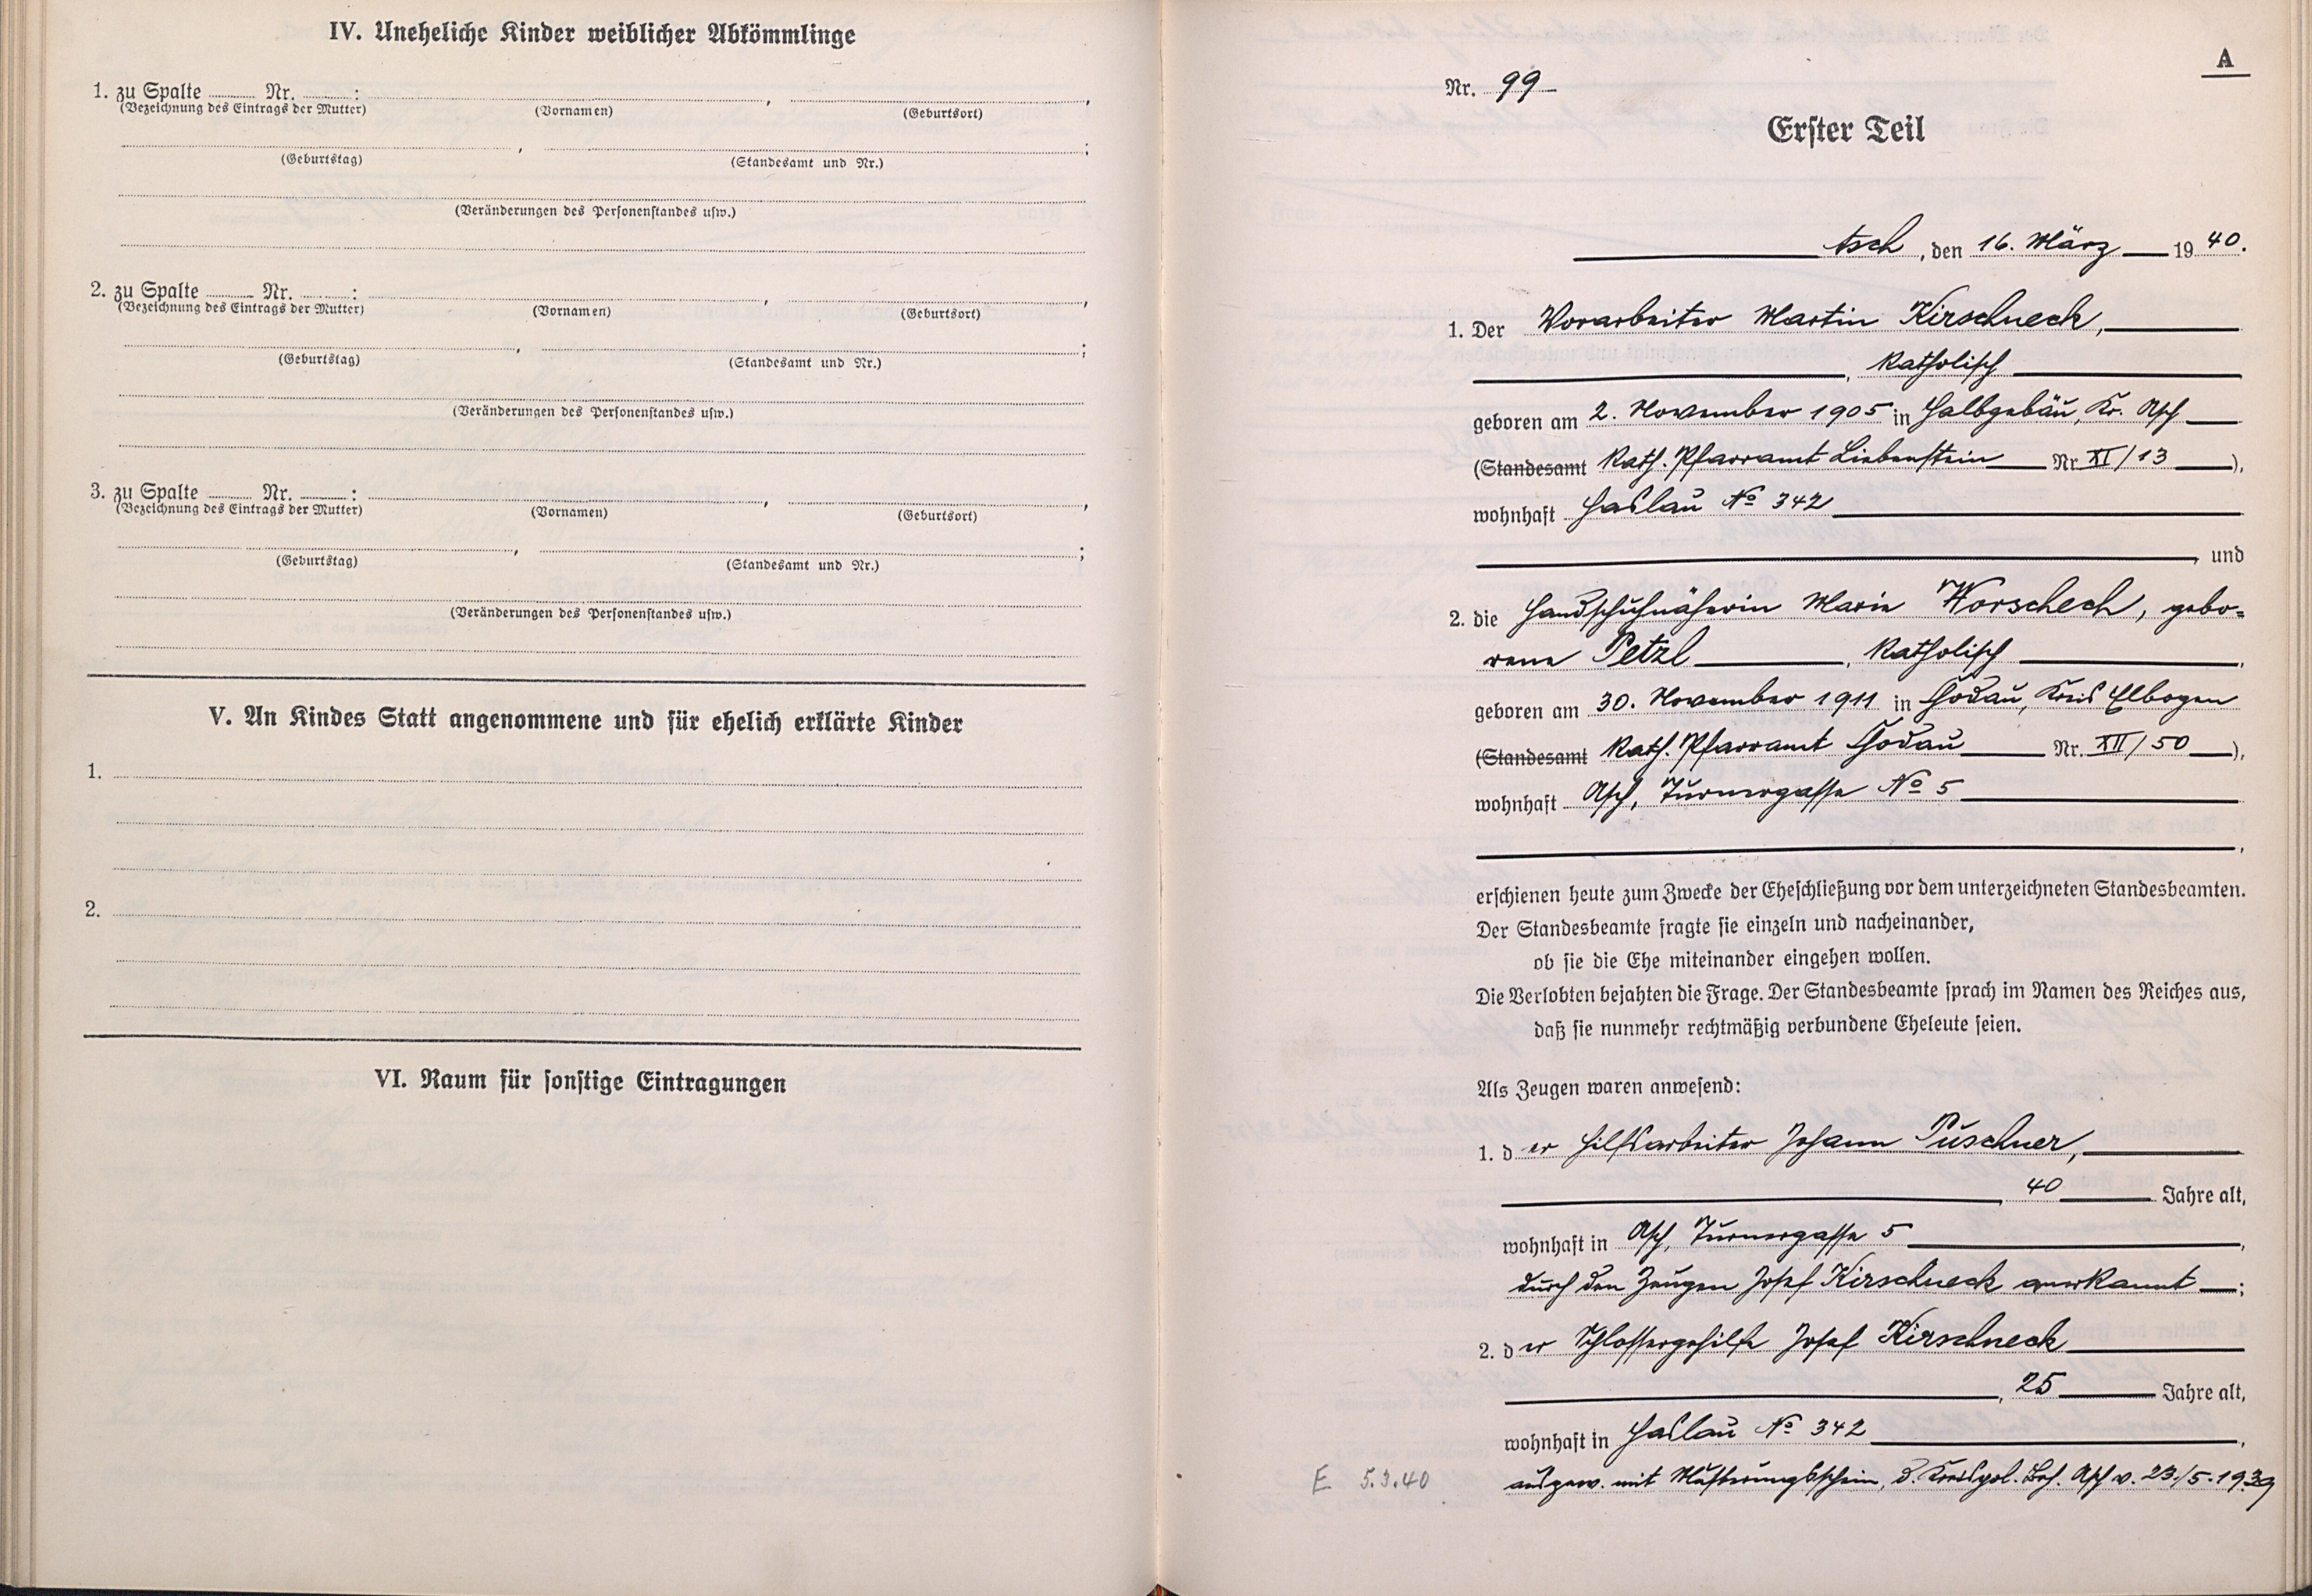 IV. Uneheliche Kinder weiblicher Abkömmlinge
1. zu Spalte ........ Nr. ........ : ........ , ........ ,
(Bezeichnung des Eintrags der Mutter) (Vornamen) (Geburtsort)
(Geburtstag) (Standesamt und Nr.)
(Veränderungen des Personenstandes usw.)
2. zu Spalte ........ Nr. ........ : ........ , ........ ,
(Bezeichnung des Eintrags der Mutter) (Vornamen) (Geburtsort)
(Geburtstag) (Standesamt und Nr.)
(Veränderungen des Personenstandes usw.)
3. zu Spalte ........ Nr. ........ : ........ , ........ ,
(Bezeichnung des Eintrags der Mutter) (Vornamen) (Geburtsort)
(Geburtstag) (Standesamt und Nr.)
(Veränderungen des Personenstandes usw.)
V. An Kindes Statt angenommene und für ehelich erklärte Kinder
1.
2.
VI. Raum für sonstige Eintragungen
A
Nr. 99
Erster Teil
Asch, den 16. März 1940.
1. Der Vorarbeiter Martin Kirschneck,
, katholisch
geboren am 2. November 1905 in Halbgebäu, Kr. Asch
(Standesamt Kath. Pfarramt Liebenstein Nr. XI/13),
wohnhaft Haslau No 342
, und
2. die Handschuhnäherin Marie Worschech, gebo=
rene Petzl, katholisch,
geboren am 30. November 1911 in Chodau, Kreis Elbogen
(Standesamt Kath. Pfarramt Chodau Nr. XII/50),
wohnhaft Asch, Turnergasse No 5
,
erschienen heute zum Zwecke der Eheschließung vor dem unterzeichneten Standesbeamten.
Der Standesbeamte fragte sie einzeln und nacheinander,
ob sie die Ehe miteinander eingehen wollen.
Die Verlobten bejahten die Frage. Der Standesbeamte sprach im Namen des Reiches aus,
daß sie nunmehr rechtmäßig verbundene Eheleute seien.
Als Zeugen waren anwesend:
1. der Hilfsarbeiter Johann Püschner,
, 40 Jahre alt,
wohnhaft in Asch, Turnergasse 5,
durch den Zeugen Josef Kirschneck anerkannt;
2. der Schlossergehilfe Josef Kirschneck
, 25 Jahre alt,
wohnhaft in Haslau No 342,
E 5.3.40
ausgew. mit Musterungsschein, d. Kreispol. Beh. Asch v. 23./5.1939